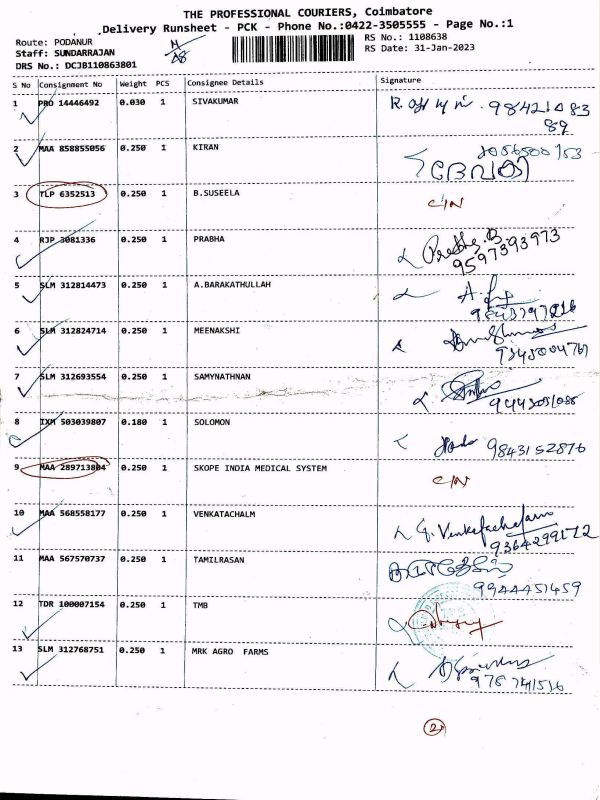 THE PROFESSIONAL COURIERS, Coimbatore
Delivery Runsheet - PCK - Phone No.:0422-3505555 - Page No.:1
Route: PODANUR
Staff: SUNDARRAJAN
DRS No.: DCJB110863801
RS No.: 1108638
RS Date: 31-Jan-2023
S No Consignment No Weight PCS Consignee Details Signature
1 PRO 14446492 0.030 1 SIVAKUMAR 98421083
89
2 MAA 858855056 0.250 1 KIRAN
3 TLP 6352513 0.250 1 B.SUSEELA C/N
4 RJP 3081336 0.250 1 PRABHA
9597393973
5 SLM 312814473 0.250 1 A.BARAKATHULLAH
6 SLM 312824714 0.250 1 MEENAKSHI
7 SLM 312693554 0.250 1 SAMYNATHNAN
8 IXM 503039807 0.180 1 SOLOMON 9843152876
9 MAA 289713804 0.250 1 SKOPE INDIA MEDICAL SYSTEM C/N
10 MAA 568558177 0.250 1 VENKATACHALM G. Venkatachalam
9364299172
11 MAA 567570737 0.250 1 TAMILRASAN
9944451459
12 TDR 100007154 0.250 1 TMB
13 SLM 312768751 0.250 1 MRK AGRO FARMS
2